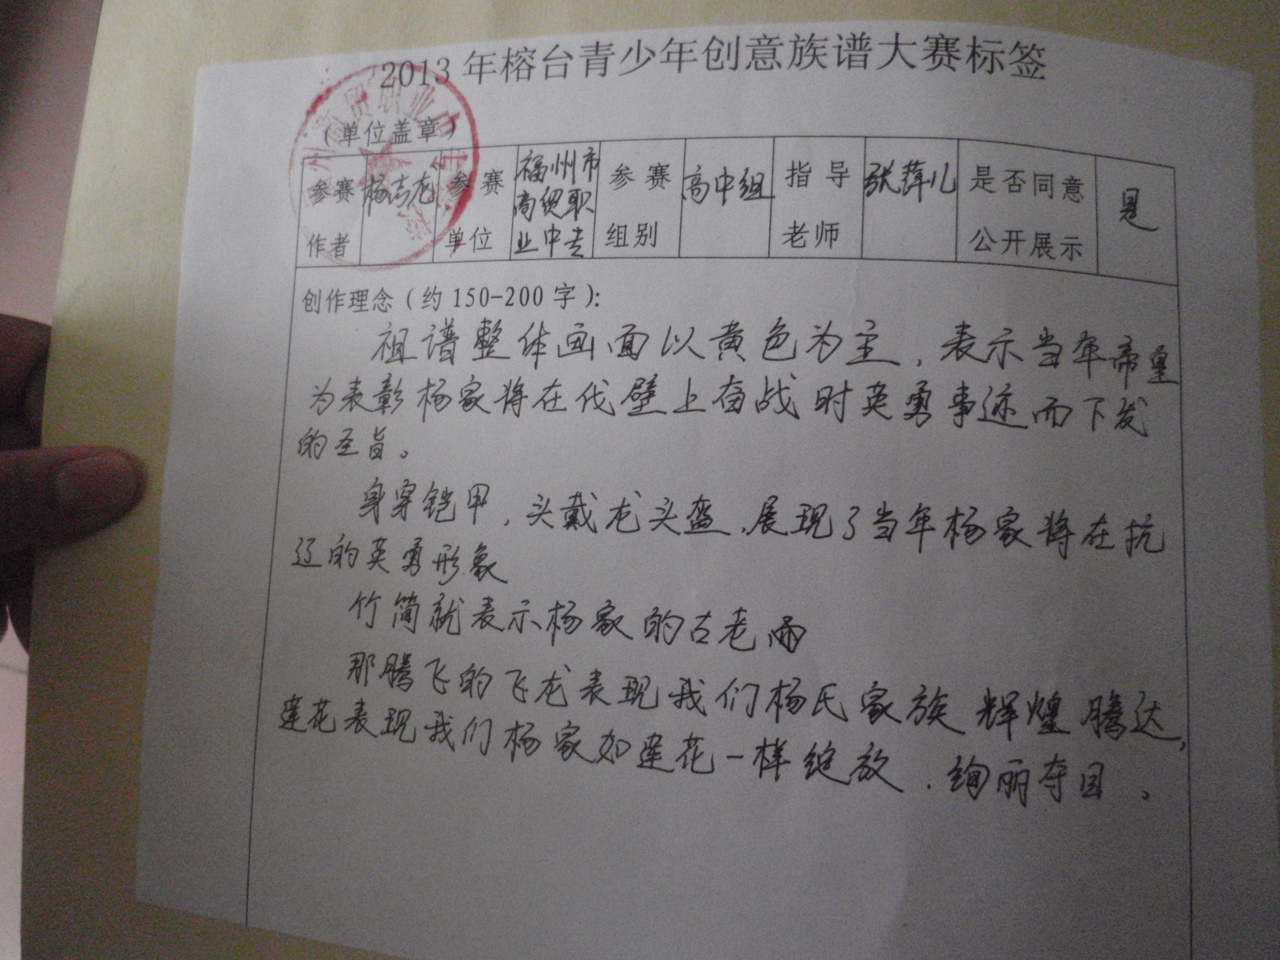 2013年榕台青少年创意族谱大赛标签
（单位盖章）
参赛作者 杨志龙 参赛单位 福州市商贸职业中专 参赛组别 高中组 指导老师 张萍儿 是否同意公开展示 是
创作理念（约150-200字）：
祖谱整体画面以黄色为主，表示当年帝皇
为表彰杨家将在伐壁上奋战时英勇事迹而下发
的圣旨。
身穿铠甲，头戴龙头盔，展现了当年杨家将在抗
辽的英勇形象
竹简就表示杨家的古老而
那腾飞的飞龙表现我们杨氏家族辉煌腾达，
莲花表现我们杨家如莲花一样绽放，绚丽夺目。